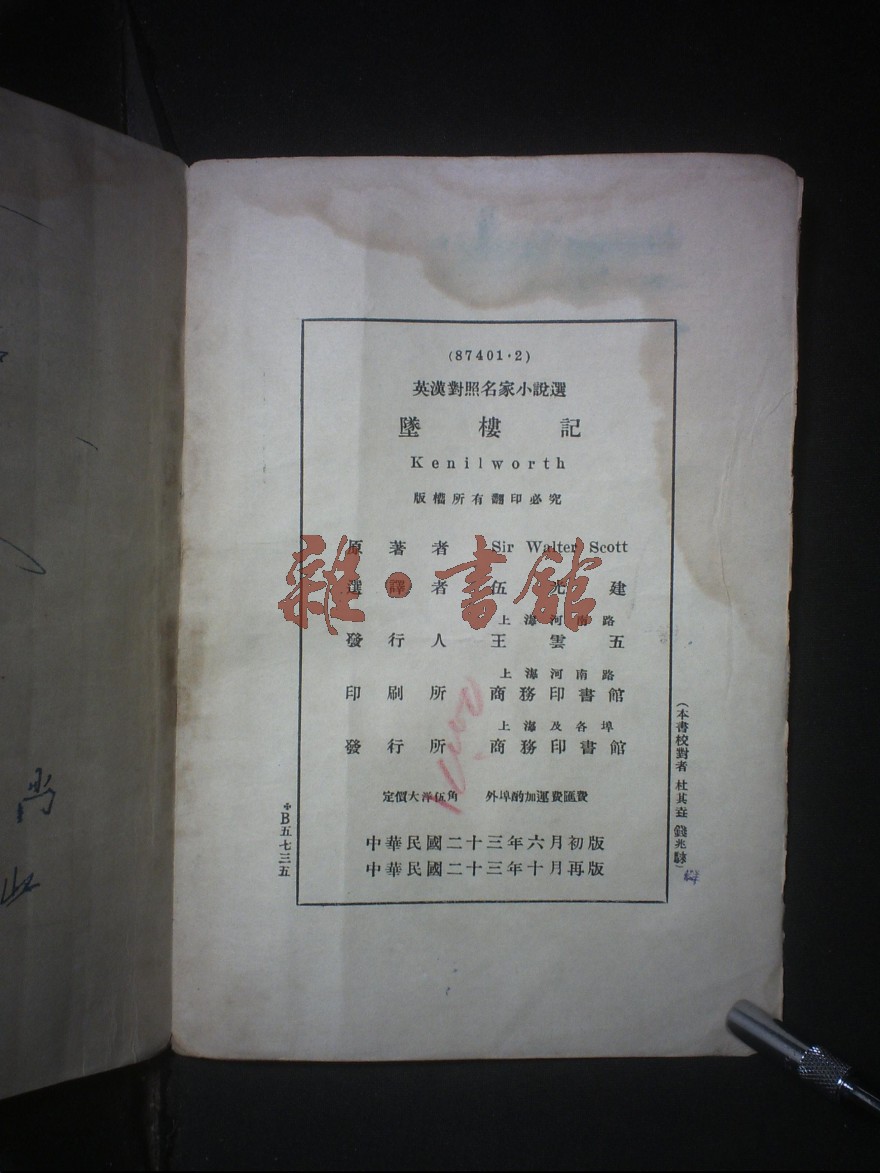 (87401·2)
英漢對照名家小說選
墜樓記
Kenilworth
版權所有翻印必究
原著者 Sir Walter Scott
選譯者 伍光建
上海河南路
發行人 王雲五
上海河南路
印刷所 商務印書館
上海及各埠
發行所 商務印書館
定價大洋伍角 外埠酌加運費匯費
中華民國二十三年六月初版
中華民國二十三年十月再版
(本書校對者 杜其垚 錢兆騤)
B五七三五
雜·書館